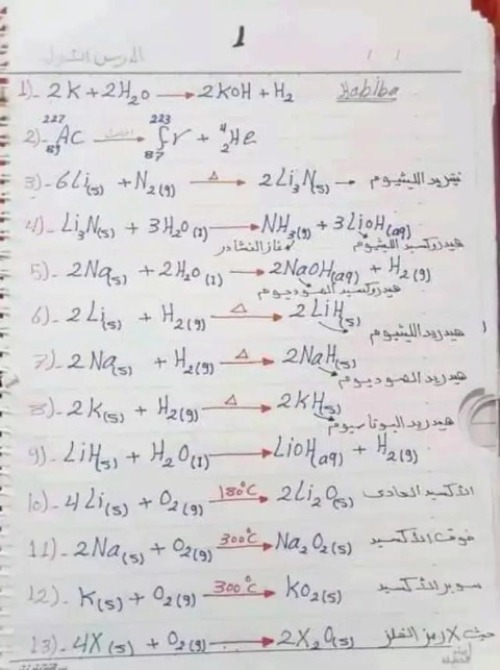 1
1)- 2K + 2H₂O → 2KOH + H₂ Habiba
2)- ²²⁷₈₉Ac → ²²³₈₇Fr + ⁴₂He
3)- 6Li(s) + N₂(g) –Δ→ 2Li₃N(s) → نيتريد الليثيوم
4)- Li₃N(s) + 3H₂O(l) → NH₃(g) + 3LiOH(aq)
غاز النشادر هيدروكسيد الليثيوم
5)- 2Na(s) + 2H₂O(l) → 2NaOH(aq) + H₂(g)
هيدروكسيد الصوديوم
6)- 2Li(s) + H₂(g) –Δ→ 2LiH(s)
هيدريد الليثيوم
7)- 2Na(s) + H₂(g) –Δ→ 2NaH(s)
هيدريد الصوديوم
8)- 2K(s) + H₂(g) –Δ→ 2KH(s)
هيدريد البوتاسيوم
9)- LiH(s) + H₂O(l) → LiOH(aq) + H₂(g)
10)- 4Li(s) + O₂(g) –180°C→ 2Li₂O(s) الأكسيد العادى
11)- 2Na(s) + O₂(g) –300°C→ Na₂O₂(s) فوق الأكسيد
12)- K(s) + O₂(g) –300°C→ KO₂(s) سوبر الأكسيد
13)- 4X(s) + O₂(g) → 2X₂O(s) حيث X رمز الفلز